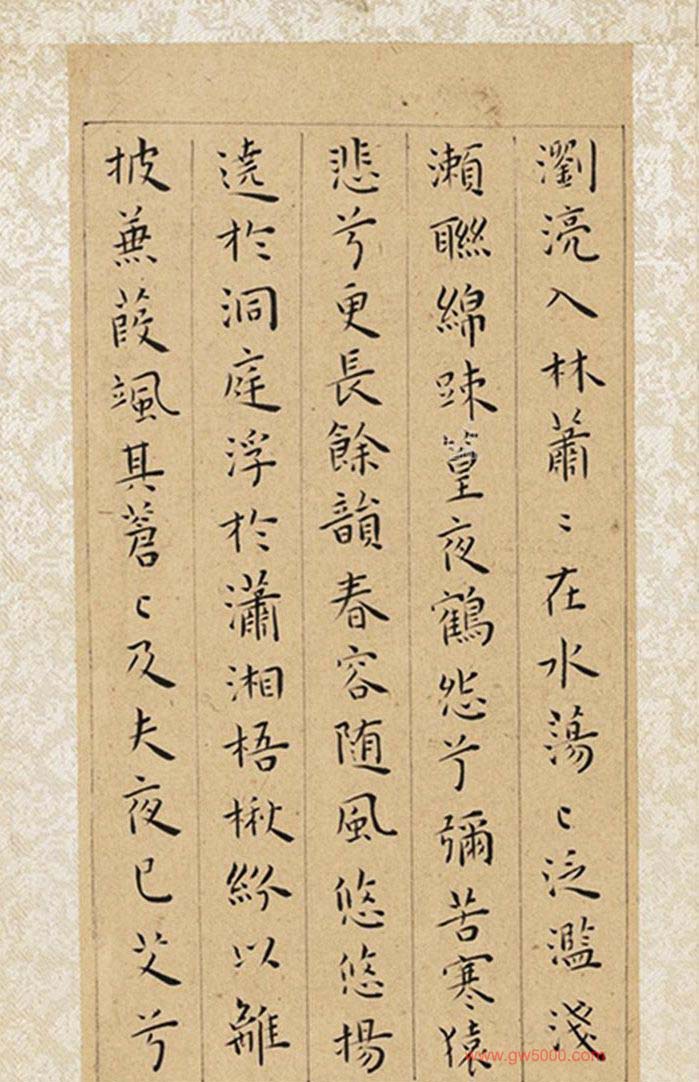 瀏湸入林蕭〻在水蕩〻泛濫淺
瀨聯綿踈篁夜鶴怨兮彌苦寒猿
悲兮更長餘韻春容随風悠悠揚
遶於洞庭浮於瀟湘梧楸紛以離
披蒹葭颯其蒼〻及夫夜已艾兮
www.gw5000.com